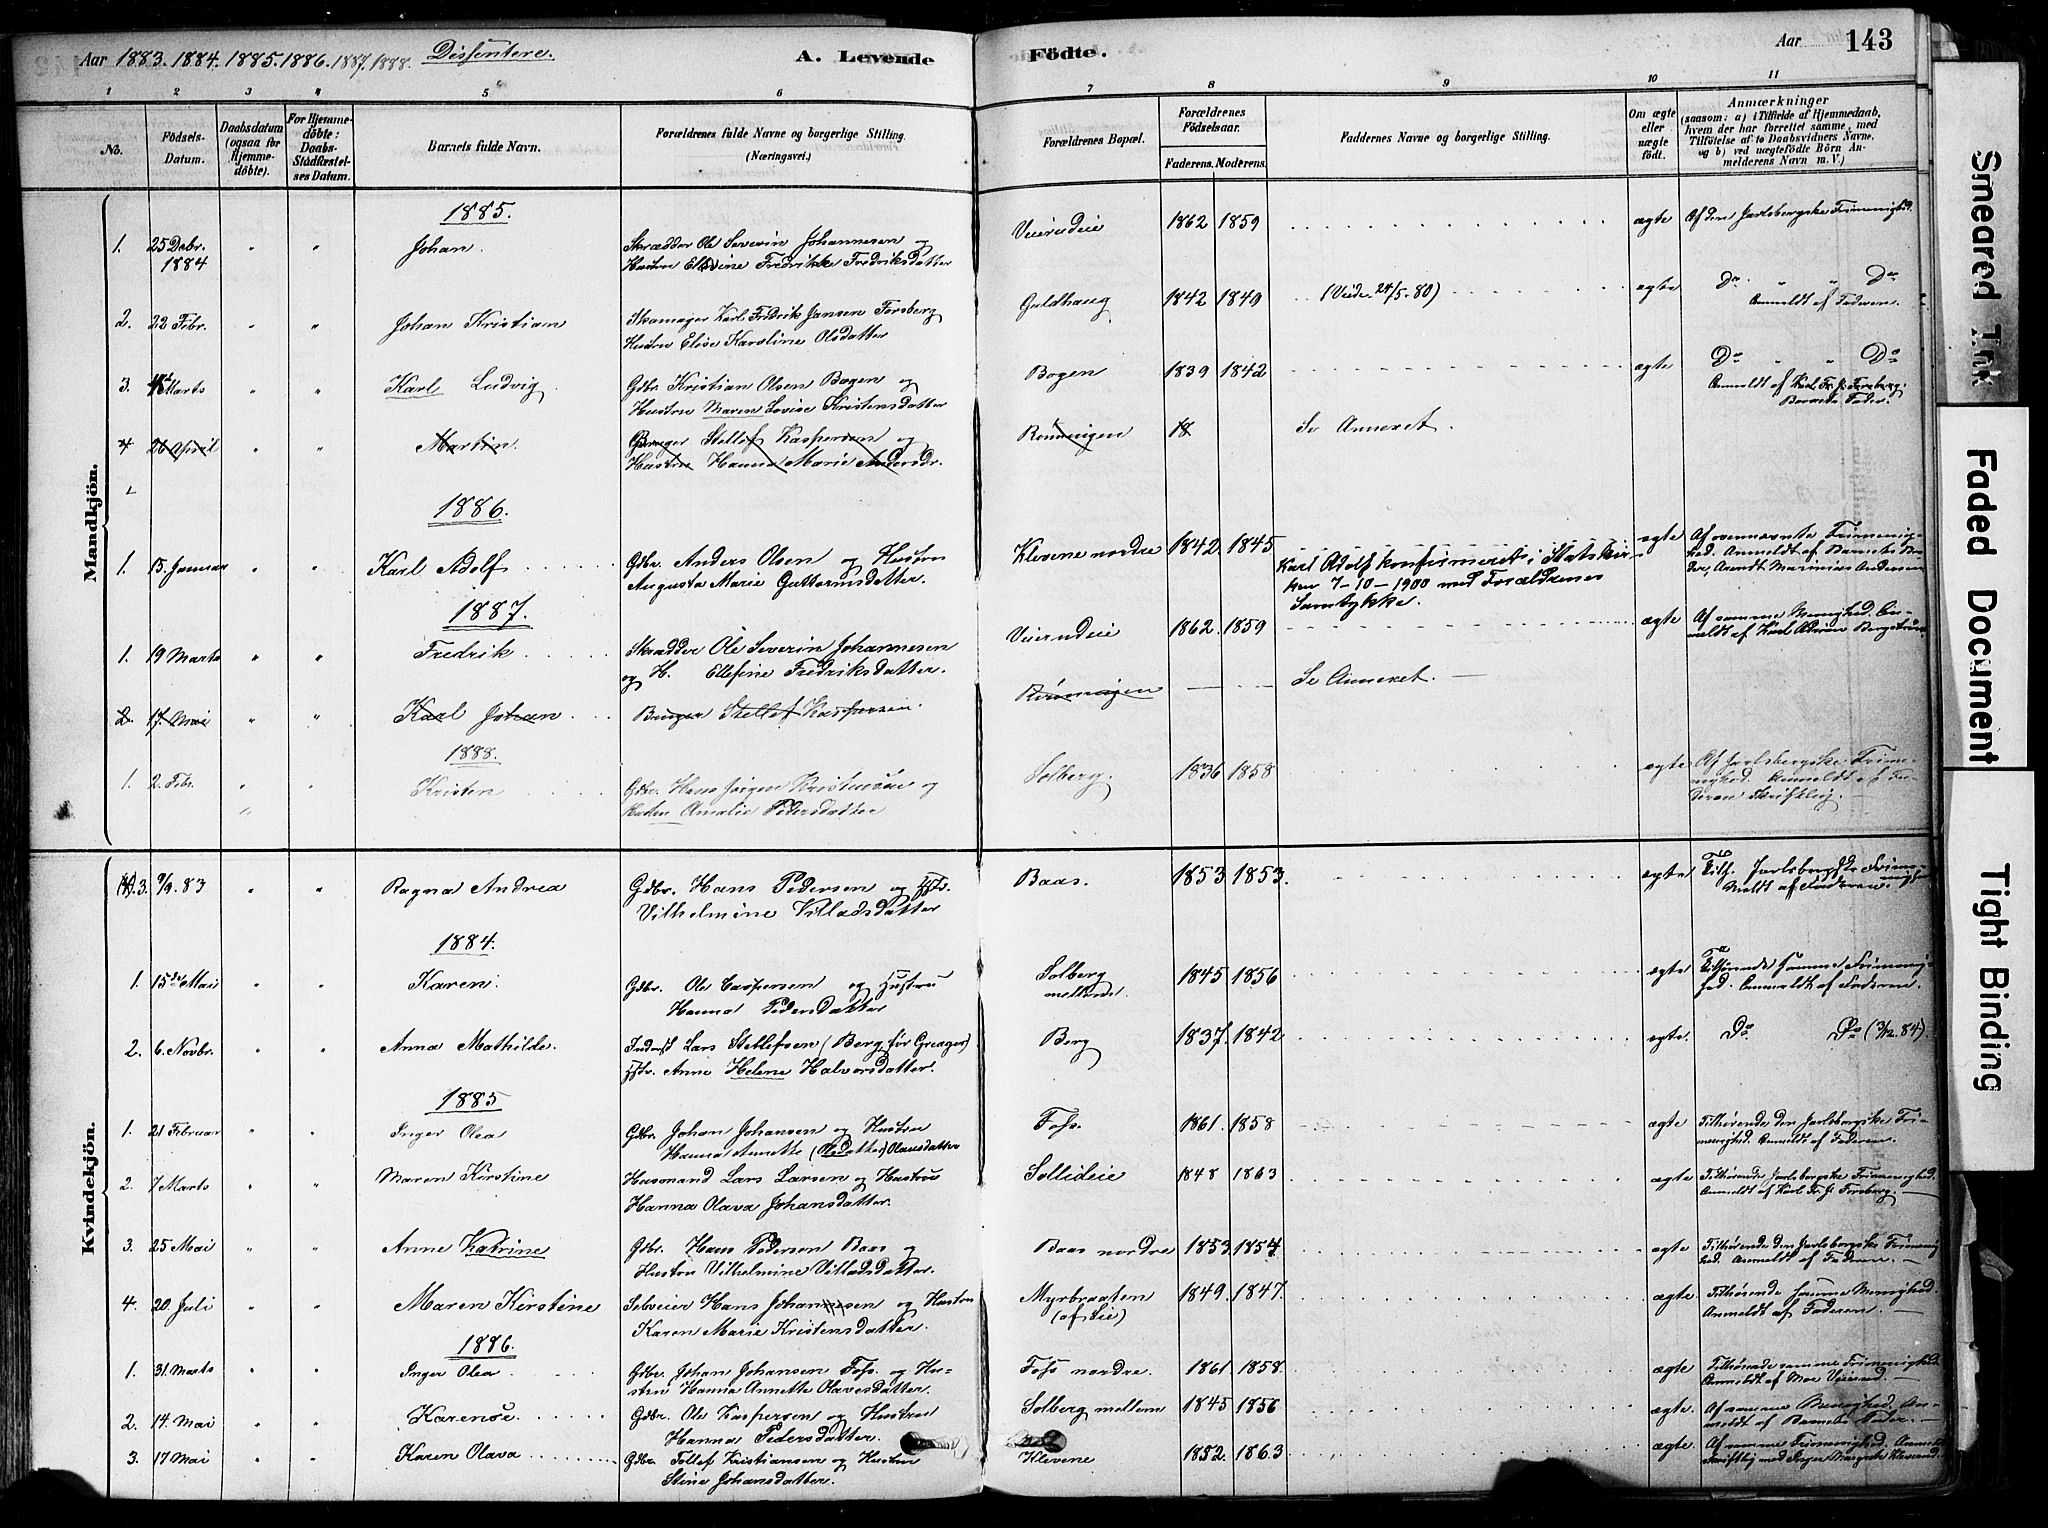 Aar 1883. 1884. 1885. 1886. 1887. 1888. Dissentere. A. Levende Födte. Aar 143
1 2 3 4 5 6 7 8 9 10 11
No. Födsels-Datum. Daabsdatum (ogsaa for Hjemmedöbte). For Hjemmedöbte: Daabs-Stadfæstelses Datum. Barnets fulde Navn. Forældrenes fulde Navne og borgerlige Stilling. (Næringsvei.) Forældrenes Bopæl. Forældrenes Födselsaar. Faderens. Moderens. Faddernes Navne og borgerlige Stilling. Om ægte eller uægte födt. Anmærkninger (saasom: a) i Tilfælde af Hjemmedaab, hvem der har forrettet samme, med Tilföielse af to Daabsvidners Navne, og b) ved uægtefödte Börn Anmelderens Navn m. V.)
Mandkjön.
1885.
1. 25 Decbr. 1884 " " Johan. Skrædder Ole Severin Johannesen og Veierudeie 1862 1859 ægte Af den Jarlsbergske Frimenighed.
Hustru Ellevine Fredrikke Fredriksdatter
2. 22 Febr. " " Johan Kristian Skomager Karl Fredrik Jansen Forsberg Guldhaug 1842 1849 (Viede 24/5-80) ægte Do " " Do
Hustru Elise Karoline Olsdatter Anmeldt af Faderen.
3. Marts " " Karl Ludvig Gdbr. Kristian Olsen Bogen og Bogen 1839 1842 ægte Do " " Do
Hustru Maren Lovise Kristensdatter Anmeldt af Karl Fr. J. Forsberg. Barnets Fader.
4 26 April " " Martin. Bruger Stellef Kaspersen og Rönningen 18 Se Annexet.
Hustru Hanna Marie Andersdr.
1886.
1. 15. Januar " " Karl Adolf Gdbr. Anders Olsen og Hustru Klevene nordre 1842. 1845 ægte Af ovennævnte Frimenighed. Anmeldt af Barnets Broder, Arendt Marinius Andersen
Augusta Marie Guttormsdatter. Karl Adolf konfirmeret i Statskirken 7-10-1900 med Forældrenes Samtykke.
1887.
1. 19 Marts " " Fredrik Skrædder Ole Severin Johannesen Veierudeie 1862. 1859 ægte Af samme Menighed. Anmeldt af Karl
og H. Ellefine Fredriksdatter.
2. 17 Mai " " Karl Johan Bruger Stellef Kaspersen. Rönningen — — Se Annexet. —
1888.
1. 2. Febr. " " Kristen Gdbr. Hans Jörgen Kristensen og Solberg. 1836 1858 ægte Af Jarlsbergske Frimenighed. Anmeldt af Faderen Skriftlig.
Hustru Amalie Pedersdatter
Kvindekjön.
3. 9/9. 83 " " Ragna Andrea Gdbr. Hans Pedersen og Hstr. Baas. 1853 1853. ægte Tilh. Jarlsbergske Frimenighed
Vilhelmine Villadsdatter Meldt af Faderen.
1884.
1. 15de Mai " " Karen. Gdbr. Ole Caspersen og Hustru Solberg mellem. 1845 1856 ægte Tilhörende samme Frimenighed. Anmeldt af Faderen.
Hanna Pedersdatter
2. 6. Novbr. " " Anna Mathilde. Inderst Lars Stellefsen (Berg för Greager) Berg 1837. 1842 ægte. Do Do (3/12. 84).
Hstr. Anne Helene Halvorsdatter.
1885
1. 21 Februar " " Inger Olea Gdbr. Johan Johansen og Hustru Foss. 1861. 1858 ægte Tilhörende den Jarlsbergske Frimenighed. Anmeldt af Faderen.
Hanna Annette (Olsdatter) Olausdatter
2. 7 Marts " " Maren Kirstine Husmand Lars Larsen og Hustru Sollideie 1848 1863 ægte Tilhörende Jarlsbergske Frimenighed. Anmeldt af Karl Fr. J. Forsberg. —
Hanna Olava Johansdatter.
3. 25 Mai " " Anne Katrine Gdbr. Hans Pedersen Baas og Baas nordre 1853. 1854 ægte Tilhörende den Jarlsbergske Frimenighed. Anmeldt af Faderen. —
Hustru Vilhelmine Villadsdatter.
4. 20. Juli " " Maren Kirstine Selveier Hans Johannesen og Hustru Myrbraaten 1849. 1847. ægte Tilhörende samme Menighed. Anmeldt af Faderen. —
Karen Marie Kristensdatter. (af Lie)
1886.
1. 31. Marts " " Inger Olea Gdbr. Johan Johansen Foss. og Hu- Foss nordre. 1861. 1858. ægte Tilhörende samme Frimenighed. Anmeldt af
stru Hanna Annette Olavesdatter.
2. 14. Mai " " Karense. Gdbr. Ole Kaspersen og Hustru Solberg mellem 1845 1856 ægte. Af samme Menighed. Anmeldt af Barnets Fader. —
Hanna Pedersdatter.
3. 17 Mai " " Karen Olava Gdbr. Tollef Kristiansen og Hustru Klevene 1852. 1863 ægte Af samme Frimenighed. Anmeldt skriftlig med Inger Margrete Kleverud.
Stine Johansdatter.
Smeared Ink
Faded Document
Tight Binding